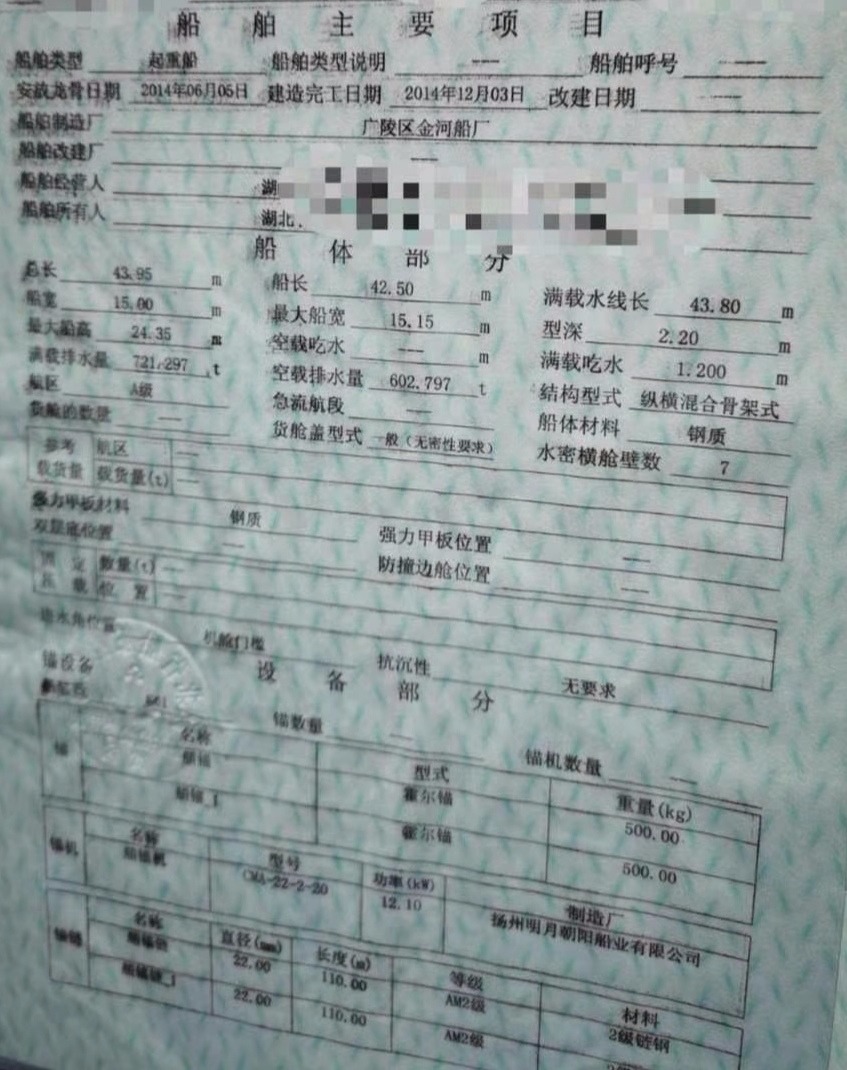 船舶主要项目
船舶类型 起重船 船舶类型说明 --- 船舶呼号 ---
安放龙骨日期 2014年06月05日 建造完工日期 2014年12月03日 改建日期 ---
船舶制造厂 广陵区金河船厂
船舶改建厂 ---
船舶经营人 湖
船舶所有人 湖北
船体部分
总长 43.95 m 船长 42.50 m 满载水线长 43.80 m
船宽 15.00 m 最大船宽 15.15 m 型深 2.20 m
最大船高 24.35 m 空载吃水 --- m 满载吃水 1.200 m
满载排水量 721.297 t 空载排水量 602.797 t 结构型式 纵横混合骨架式
航区 A级 急流航段 --- 船体材料 钢质
货舱的数量 --- 货舱盖型式 一般(无密性要求) 水密横舱壁数 7
参考载货量 航区 ---
载货量(t) ---
强力甲板材料 钢质 强力甲板位置 ---
双层底位置 --- 防撞边舱位置 ---
固定压载 数量(t) ---
位置 ---
进水角位置 机舱门槛 抗沉性 无要求
设备部分
锚设备
锚数量 --- 锚机数量 ---
锚 名称 型式 重量(kg)
艏锚 霍尔锚 500.00
霍尔锚 500.00
锚机 名称 型号 功率(kW) 制造厂
艏锚机 CMA-22-2-20 12.10 扬州明月朝阳船业有限公司
锚链 名称 直径(mm) 长度(m) 等级 材料
艏锚链 22.00 110.00 AM2级 2级链钢
22.00 110.00 AM2级